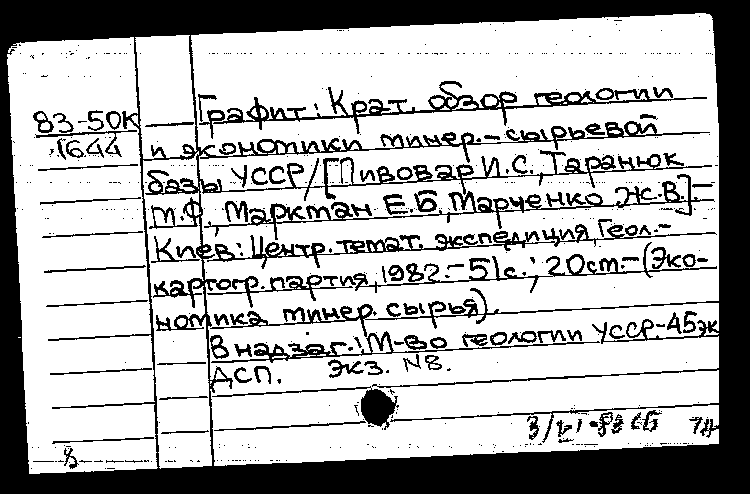 83-50К
1644
Графит: Крат. обзор геологии
и экономики минер.-сырьевой
базы УССР/[Пивовар И.С., Таранюк
М.Ф., Марктан Е.Б., Марченко Ж.В.].-
Киев: Центр. темат. экспедиция, Геол.-
картогр. партия, 1982.-51с.; 20см.-(Эко-
номика минер. сырья).
В надзаг.: М-во геологии УССР.-45эк
ДСП. Экз. N8.
8